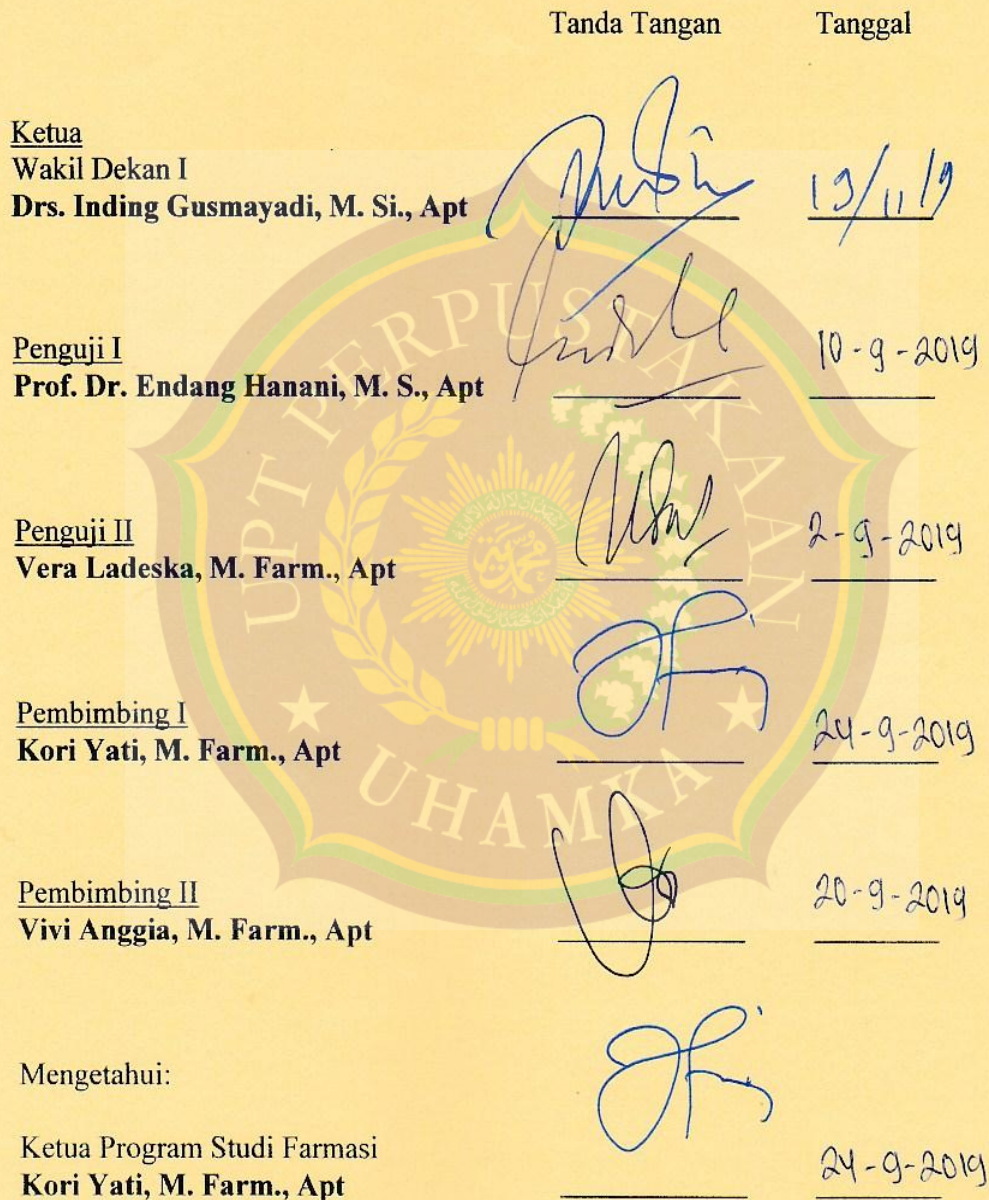 Tanda Tangan Tanggal
Ketua
Wakil Dekan I
Drs. Inding Gusmayadi, M. Si., Apt
Penguji I
Prof. Dr. Endang Hanani, M. S., Apt
10-9-2019
Penguji II
Vera Ladeska, M. Farm., Apt
2-9-2019
Pembimbing I
Kori Yati, M. Farm., Apt
24-9-2019
Pembimbing II
Vivi Anggia, M. Farm., Apt
20-9-2019
Mengetahui:
Ketua Program Studi Farmasi
Kori Yati, M. Farm., Apt
24-9-2019
UPT PERPUSTAKAAN
UHAMKA